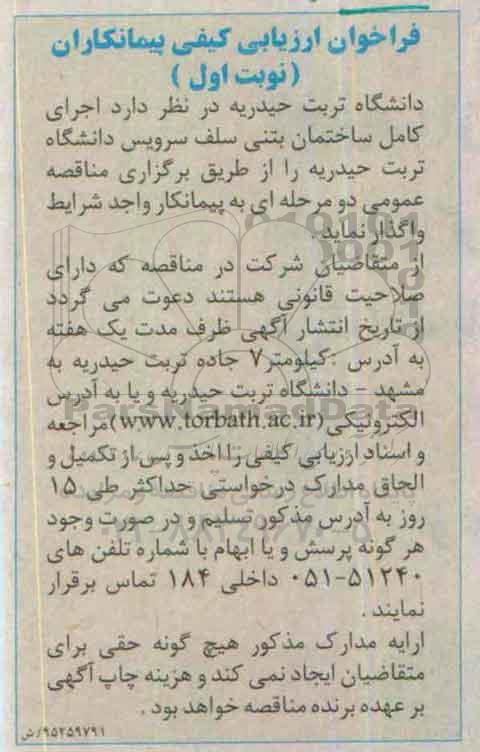 فراخوان ارزیابی کیفی پیمانکاران
( نوبت اول )
دانشگاه تربت حیدریه در نظر دارد اجرای
کامل ساختمان بتنی سلف سرویس دانشگاه
تربت حیدریه را از طریق برگزاری مناقصه
عمومی دو مرحله ای به پیمانکار واجد شرایط
واگذار نماید .
از متقاضیان شرکت در مناقصه که دارای
صلاحیت قانونی هستند دعوت می گردد
از تاریخ انتشار آگهی ظرف مدت یک هفته
به آدرس :کیلومتر۷ جاده تربت حیدریه به
مشهد – دانشگاه تربت حیدریه و یا به آدرس
الکترونیکی(www.torbath.ac.ir)مراجعه
و اسناد ارزیابی کیفی را اخذ و پس از تکمیل و
الحاق مدارک درخواستی حداکثر طی ۱۵
روز به آدرس مذکور تسلیم و در صورت وجود
هر گونه پرسش و یا ابهام با شماره تلفن های
۰۵۱-۵۱۲۴۰ داخلی ۱۸۴ تماس برقرار
نمایند .
ارایه مدارک مذکور هیچ گونه حقی برای
متقاضیان ایجاد نمی کند و هزینه چاپ آگهی
بر عهده برنده مناقصه خواهد بود .
۹۵۲۵۹۷۹۱/ش
ParsNamadData